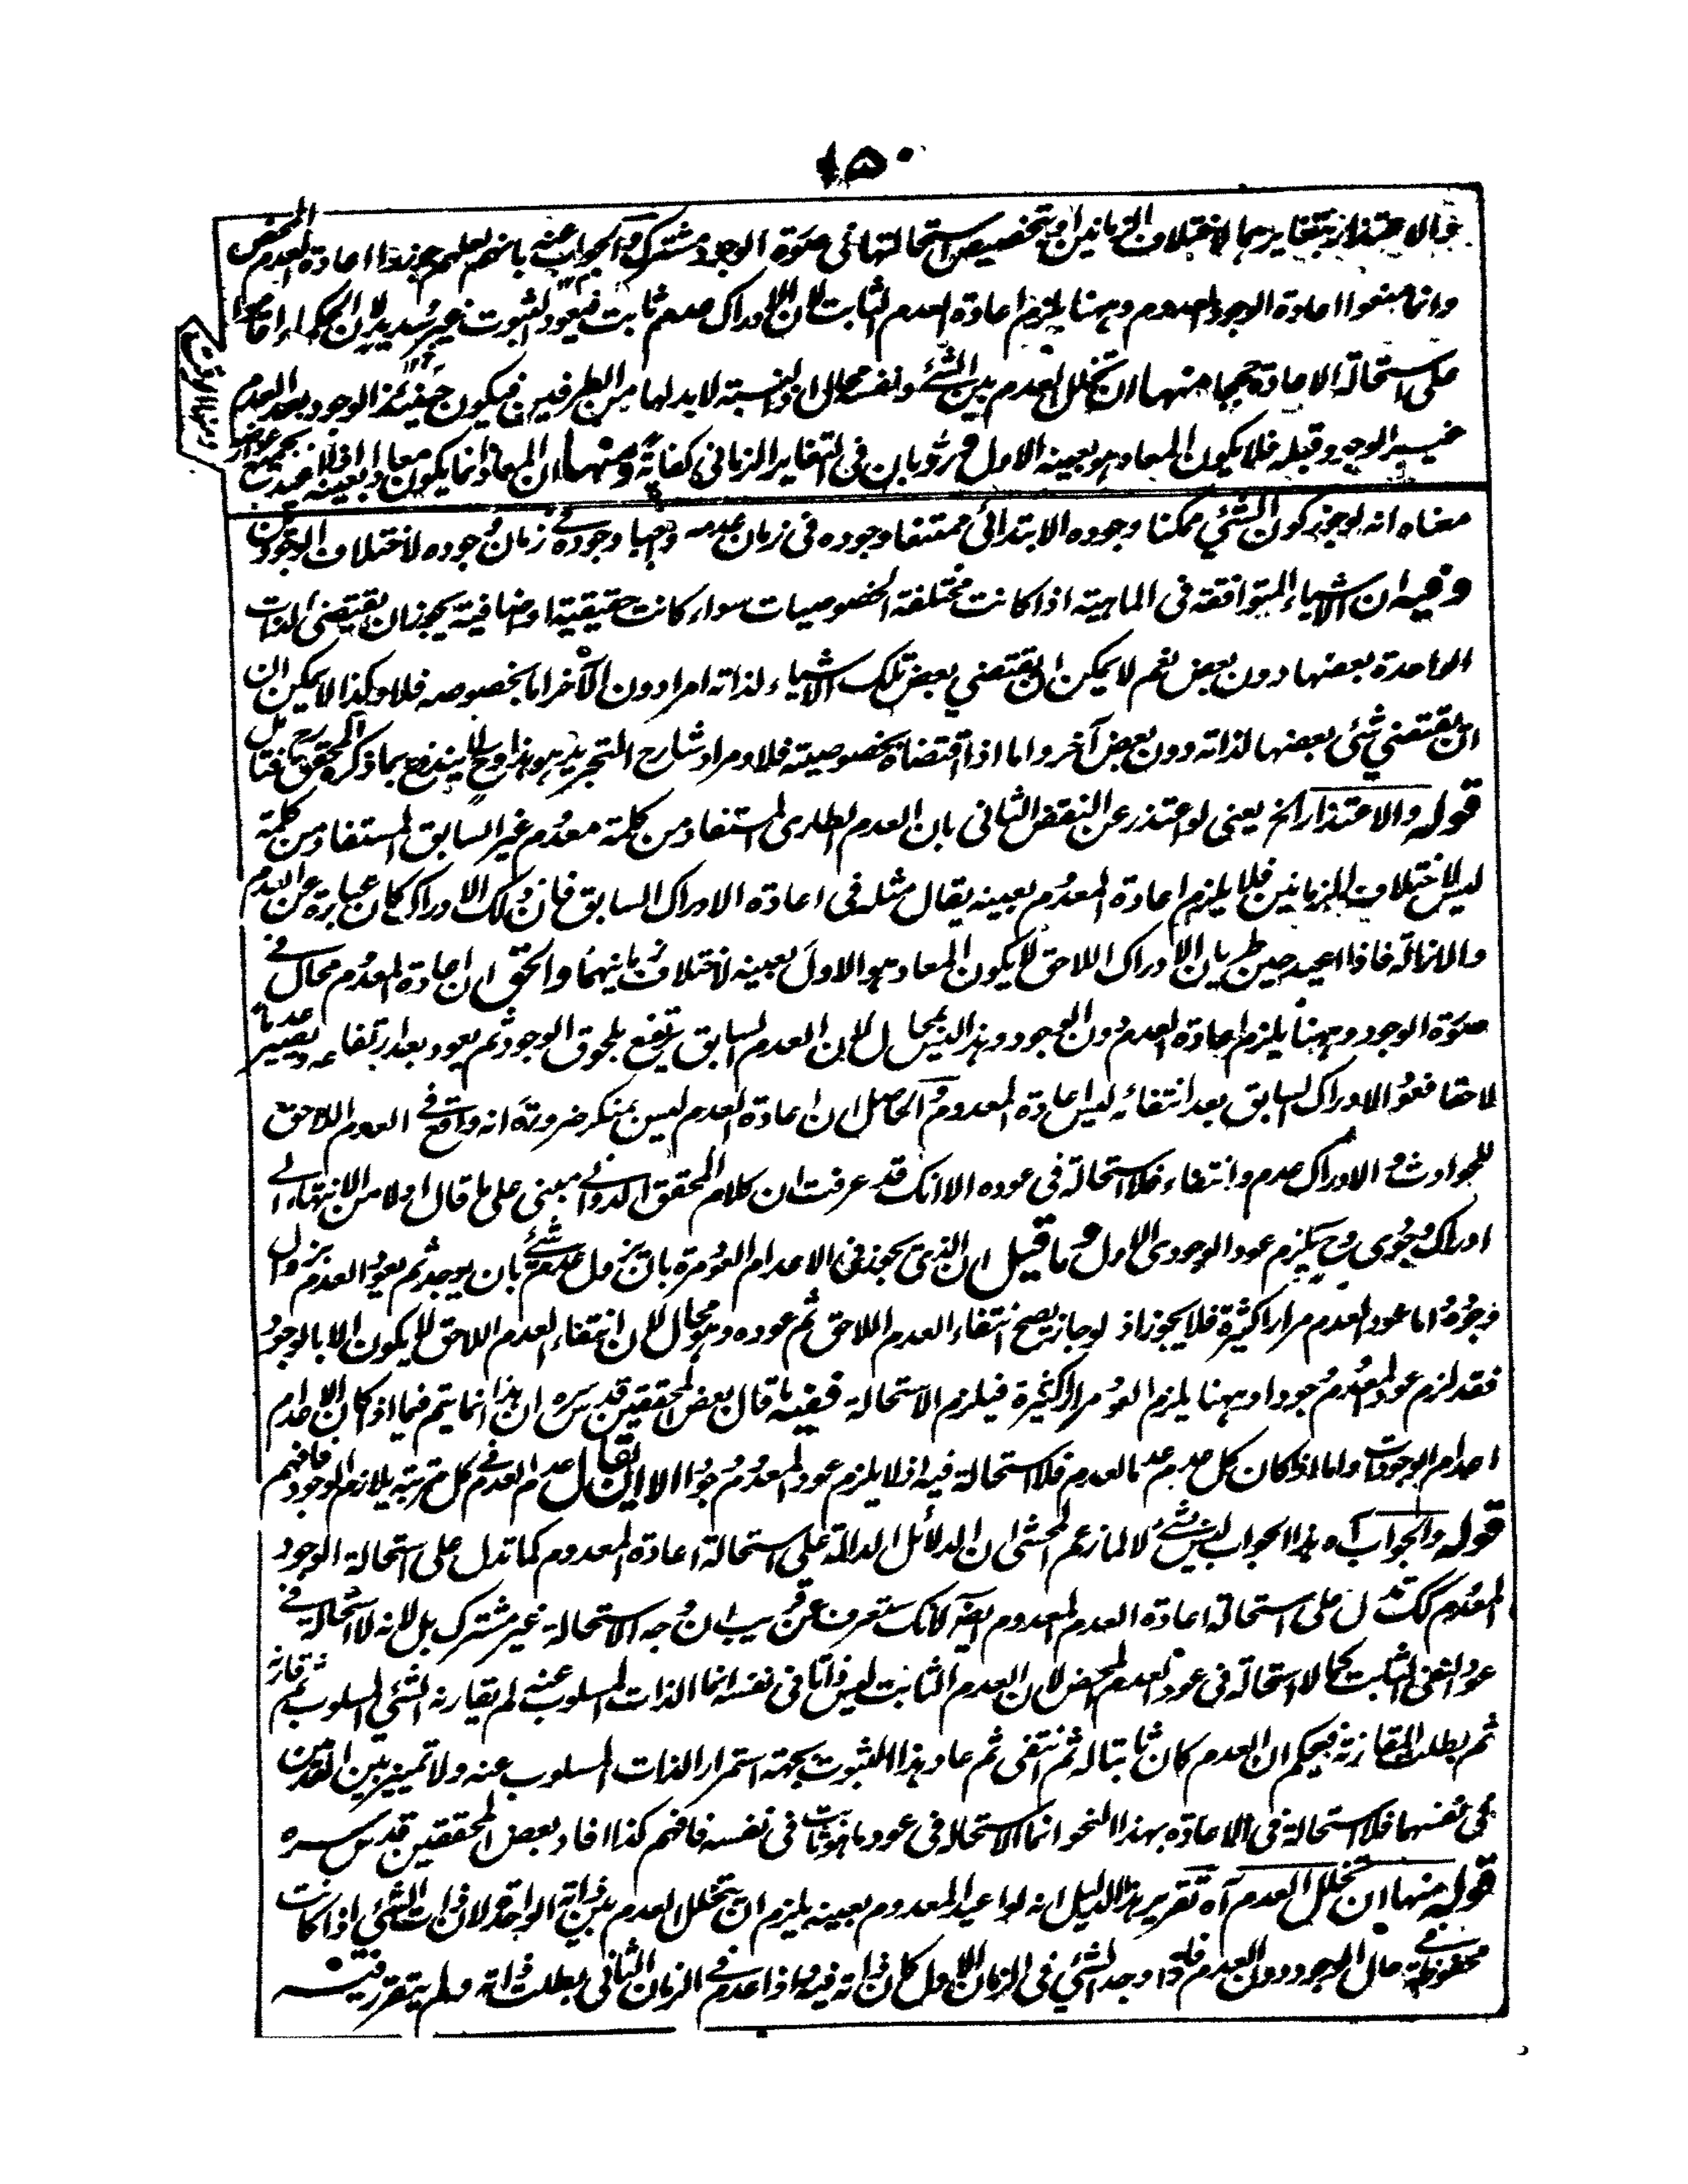 ١٥٠
والاعتذار بتغايرهما لاختلاف الزمانين او تخصيص استحالتها فى صورة الوجود مشترك والجواب عنه بانهم لعلهم جوزوا اعادة العدم المحض
وانما منعوا اعادة الوجود المعدوم وههنا يلزم اعادة العدم الثابت لان الادراك عدم ثابت فيعود الثبوت غير سديد لان الحكماء اقاموا
على استحالة الاعادة حججا منها ان تخلل العدم بين الشئ ونفسه محال اذ النسبة لا بد لها من الطرفين فيكون حينئذ الوجود بعد العدم
غير الوجود قبله فلا يكون المعاد هو بعينه الاول ورد بان فى التغاير الزمانى كفاية ومنها ان المعاد انما يكون معادا بعينه اذا اعيد بجميع عوارضه
ومنها الوقت
معناه انه لو جوز كون الشئ ممكنا وجوده الابتدائى ممتنعا وجوده فى زمان عدمه واجبا وجوده فى زمان وجوده لاختلاف الوجودين
وفيه ان الاشياء المتوافقة فى الماهية اذا كانت مختلفة الخصوصيات سواء كانت حقيقية او اضافية يجوز ان يقتضى الذات
الواحدة بعضها دون بعض نعم لا يمكن ان يقتضي بعض تلك الاشياء لذاته امرا دون الآخر اما بخصوصه فلا وكذا لا يمكن ان
ان يقتضي شئ بعضها لذاته دون بعض آخر واما اذا اقتضاه بخصوصيته فلا ومراد شارح التجريد هو هذا وح لا يندفع بما ذكره المحقق فتأمل
قوله والاعتذار الخ يعنى لو اعتذر عن النقض الثانى بان العدم الطارى المستفاد من كلمة معدوم غير السابق المستفاد من كلمة
ليس لاختلاف الزمانين فلا يلزم اعادة المعدوم بعينه يقال مثله فى اعادة الادراك السابق فان ذلك الادراك كان عبارة عن العدم
والازالة فاذا اعيد حين طريان الادراك اللاحق لا يكون المعاد هو الاول بعينه لاختلاف زمانيهما والحق ان اعادة المعدوم محال فى
صورة الوجود وههنا يلزم اعادة العدم دون الوجود وهذا ليس بمحال لان العدم السابق يرتفع بلحوق الوجود ثم يعود بعد ارتفاعه ويصير عدما
لاحقا فعود الادراك السابق بعد انتفائه ليس اعادة المعدوم والحاصل ان اعادة العدم ليس بمنكر ضرورة انه واقع فى العدم اللاحق
للحوادث والادراك عدم وانتفاء فلا استحالة فى عوده الا انك قد عرفت ان كلام المحقق الدوانى مبنى على ما قال اولا من الانتهاء الى
ادراك وجودى وح يلزم عود الوجودى الاول وما قيل ان الذى يجوز فى الاعدام العود مرة بان يزول عدم شئ بان يوجد ثم يعود العدم بزوال
وجوده اما عود العدم مرارا كثيرة فلا يجوز اذ لو جاز يصح انتفاء العدم اللاحق ثم عوده وهو محال لان انتفاء العدم اللاحق لا يكون الا بالوجود
فقد لزم عود المعدوم موجودا وههنا يلزم العود مرارا كثيرة فيلزم الاستحالة ففيه ما قال بعض المحققين قدس سره ان هذا انما يتم فيما اذا كان الاعدام
اعدام الوجودات واما اذا كان كل عدم عدما لعدم فلا استحالة فيه اذ لا يلزم عود المعدوم موجودا الا ان يقال عدم العدم فى كل مرتبة يلازم الوجود فافهم
قوله والجواب آه هذا الجواب ليس بشئ لا لما زعم المحشى ان الدلائل الدالة على استحالة اعادة المعدوم كما تدل على استحالة الوجود
المعدوم كك تدل على استحالة اعادة العدم المعدوم ايضا لانك ستعرف عن قريب ان وجه الاستحالة غير مشترك بل لانه لا استحالة فى
عود النفى الثابت كما لا استحالة فى عود العدم المحض لان العدم الثابت ليس ذاتا فى نفسه انما الذات المسلوب عنه لم يقارنه الشئ المسلوب ثم قارنه
ثم بطلت المقارنة فيحكم ان العدم كان ثابتا له ثم انتفى ثم عاد وهذا الثبوت بجهة استمرار الذات المسلوب عنه ولا تمييز بين العدمين
فى نفسهما فلا استحالة فى الاعادة بهذا النحو انما الاستحالة فى عود ما هو ثابت فى نفسه فافهم كذا افاد بعض المحققين قدس سره
قوله منها ان تخلل العدم آه تقرير هذا الدليل انه لو اعيد المعدوم بعينه يلزم ان يتخلل العدم بين ذاته الواحدة لان ذات الشئ اذا كانت
محفوظة فى حال الوجود دون العدم فاذا وجد الشئ فى الزمان الاول كان ذاته فيه واذا عدم فى الزمان الثانى بطلت ذاته ولم يتقرر فيه